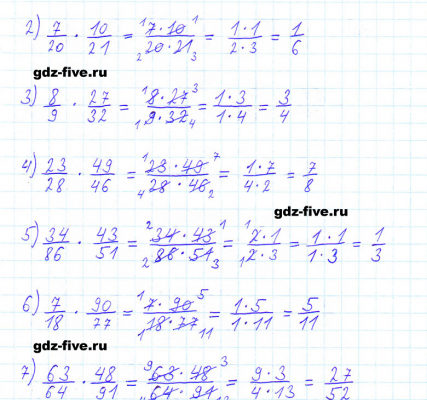 2) 7/20 · 10/21 = 7·10/20·21 = 1·1/2·3 = 1/6
gdz-five.ru
3) 8/9 · 27/32 = 8·27/9·32 = 1·3/1·4 = 3/4
4) 23/28 · 49/46 = 23·49/28·46 = 1·7/4·2 = 7/8
gdz-five.ru
5) 34/86 · 43/51 = 34·43/86·51 = 2·1/2·3 = 1·1/1·3 = 1/3
6) 7/18 · 90/77 = 7·90/18·77 = 1·5/1·11 = 5/11
gdz-five.ru
7) 63/64 · 48/91 = 63·48/64·91 = 9·3/4·13 = 27/52